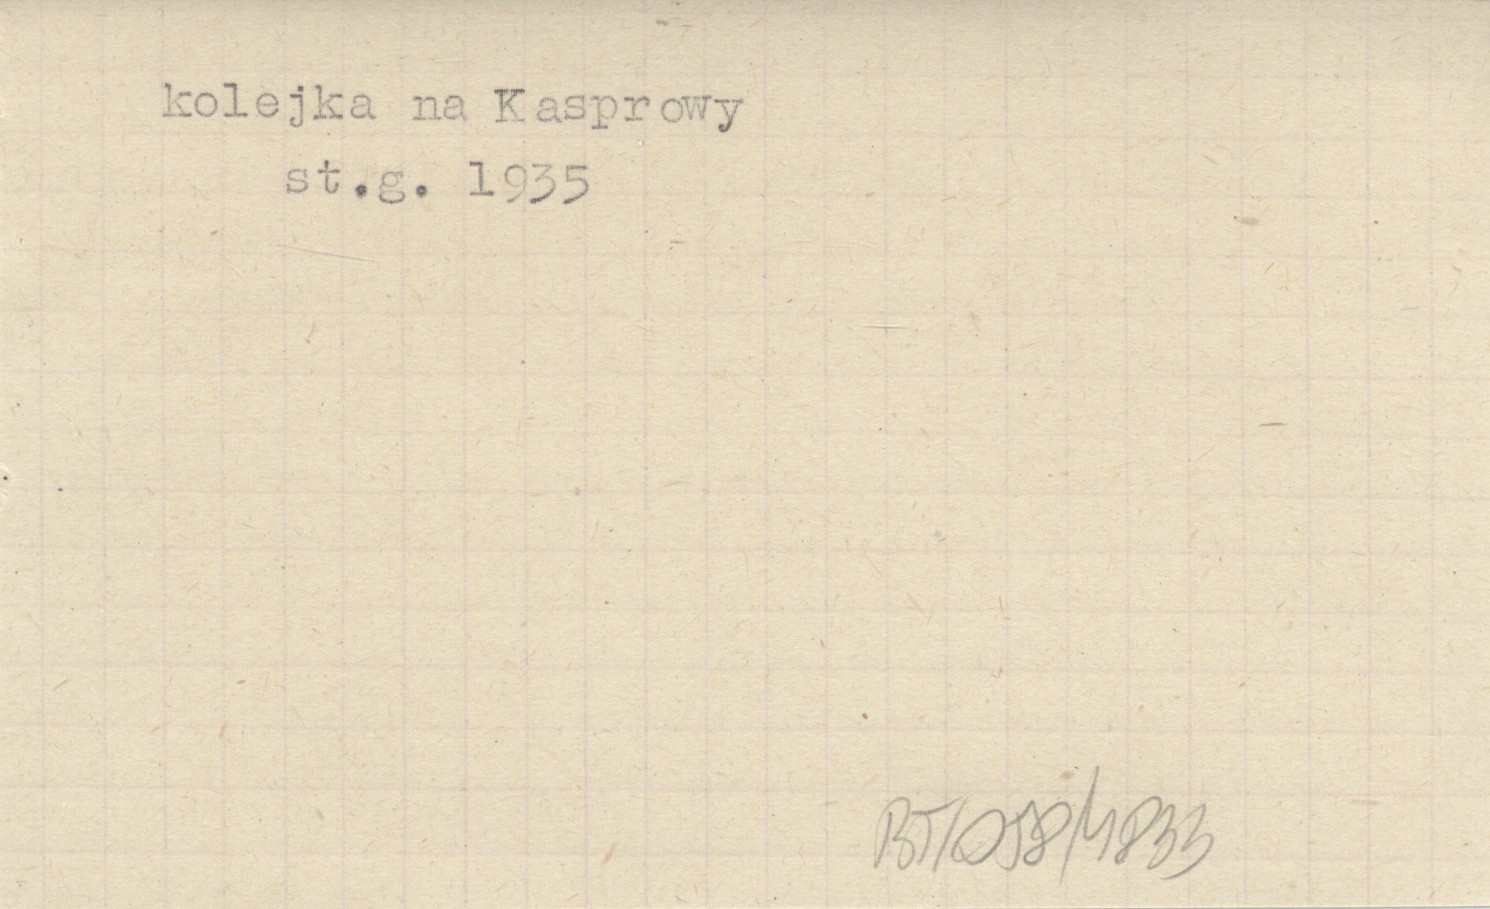 kolejka na Kasprowy
st.g. 1935
BT/058/1833